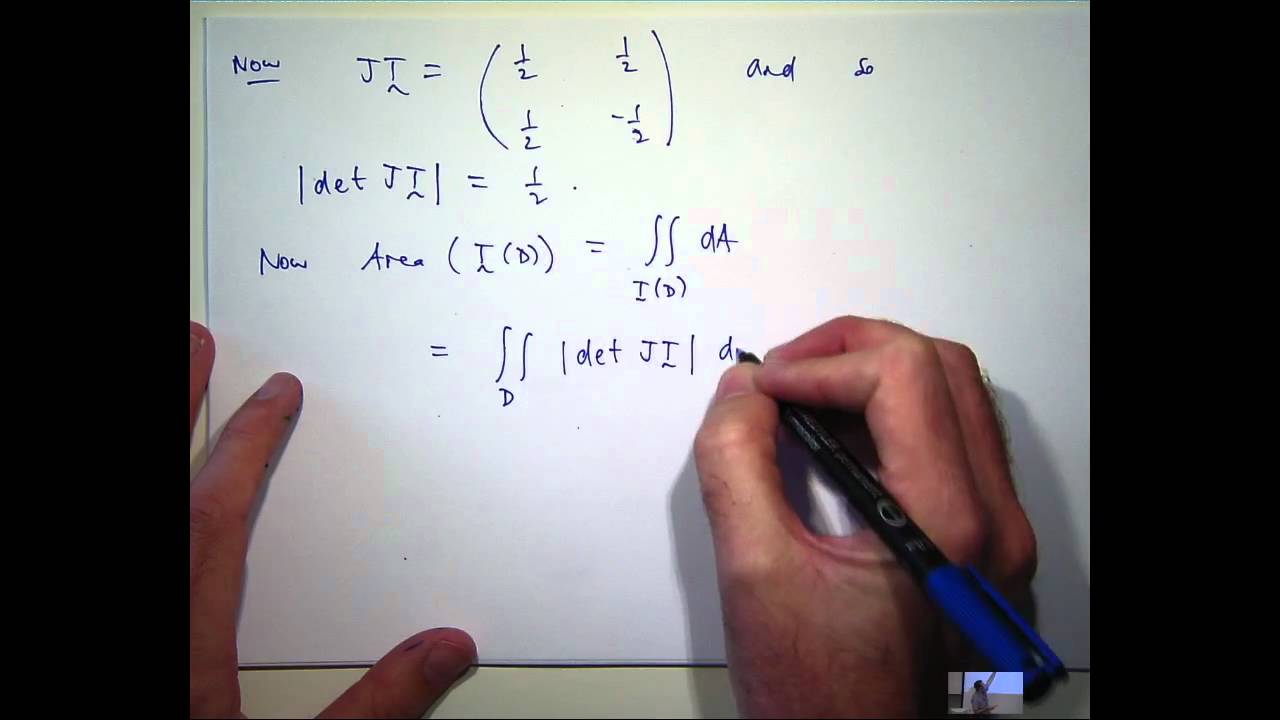 Now JT̰ = ( 1/2 1/2 ; 1/2 -1/2 ) and so
|det JT̰| = 1/2 .
Now Area (T̰(D)) = ∬ dA
T(D)
= ∬ |det JT̰| d
D